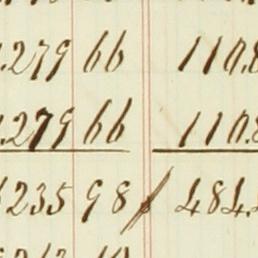 .279 66 110.8
.279 66 110.8
235 98 484.